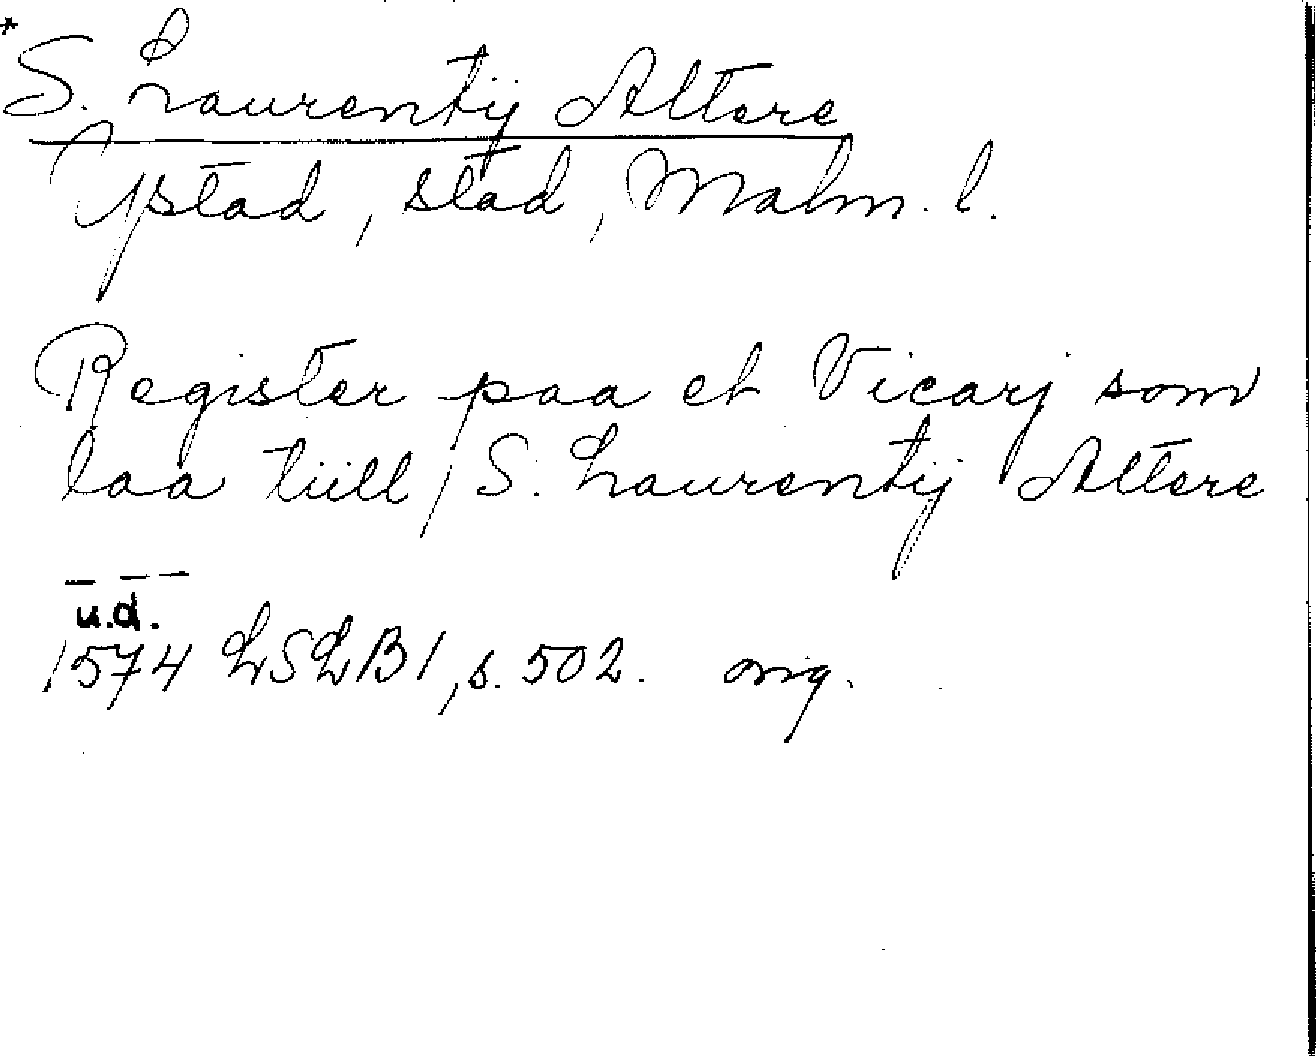 *
S. Laurentij Altere
Ystad, stad, Malm. l.
Register paa et Vicarj som
laa tiill / S. Laurentij Altere
— — —
u.d.
1574 LSLB 1, s. 502. orig.